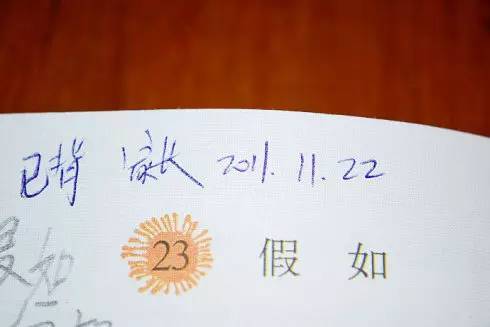 已背 家长 2011.11.22
23 假如
如